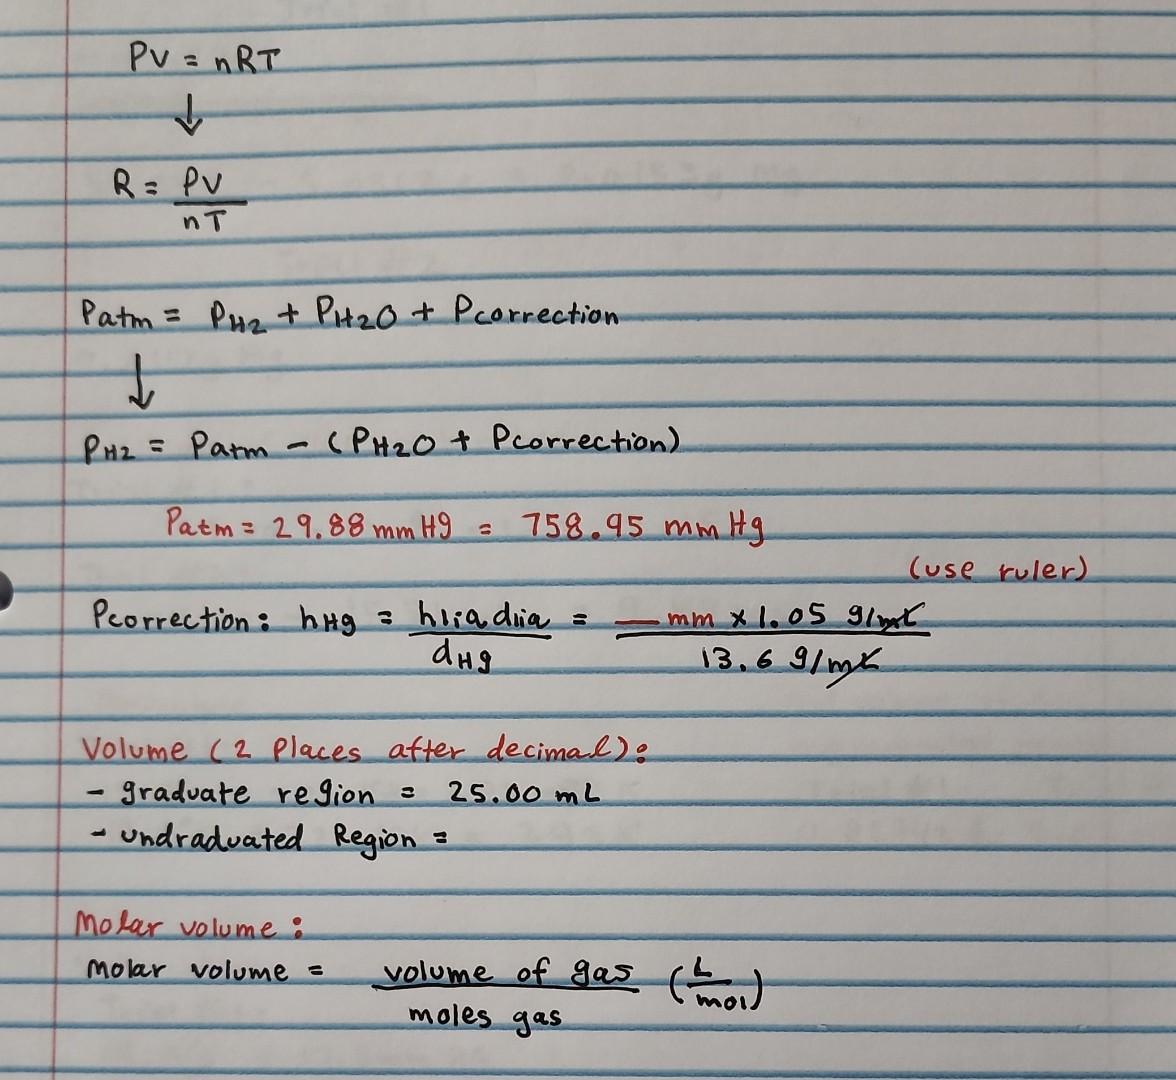 PV = nRT
↓
R = PV
nT
Patm = PH2 + PH2O + Pcorrection
↓
PH2 = Patm - (PH2O + Pcorrection)
Patm = 29.88 mm Hg = 758.95 mm Hg
(use ruler)
Pcorrection: hHg = hliq dliq = __ mm x 1.05 g/mL
dHg 13.6 g/mL
Volume (2 Places after decimal):
- graduate region = 25.00 mL
- undraduated Region =
Molar volume:
Molar volume = volume of gas (L/mol)
moles gas